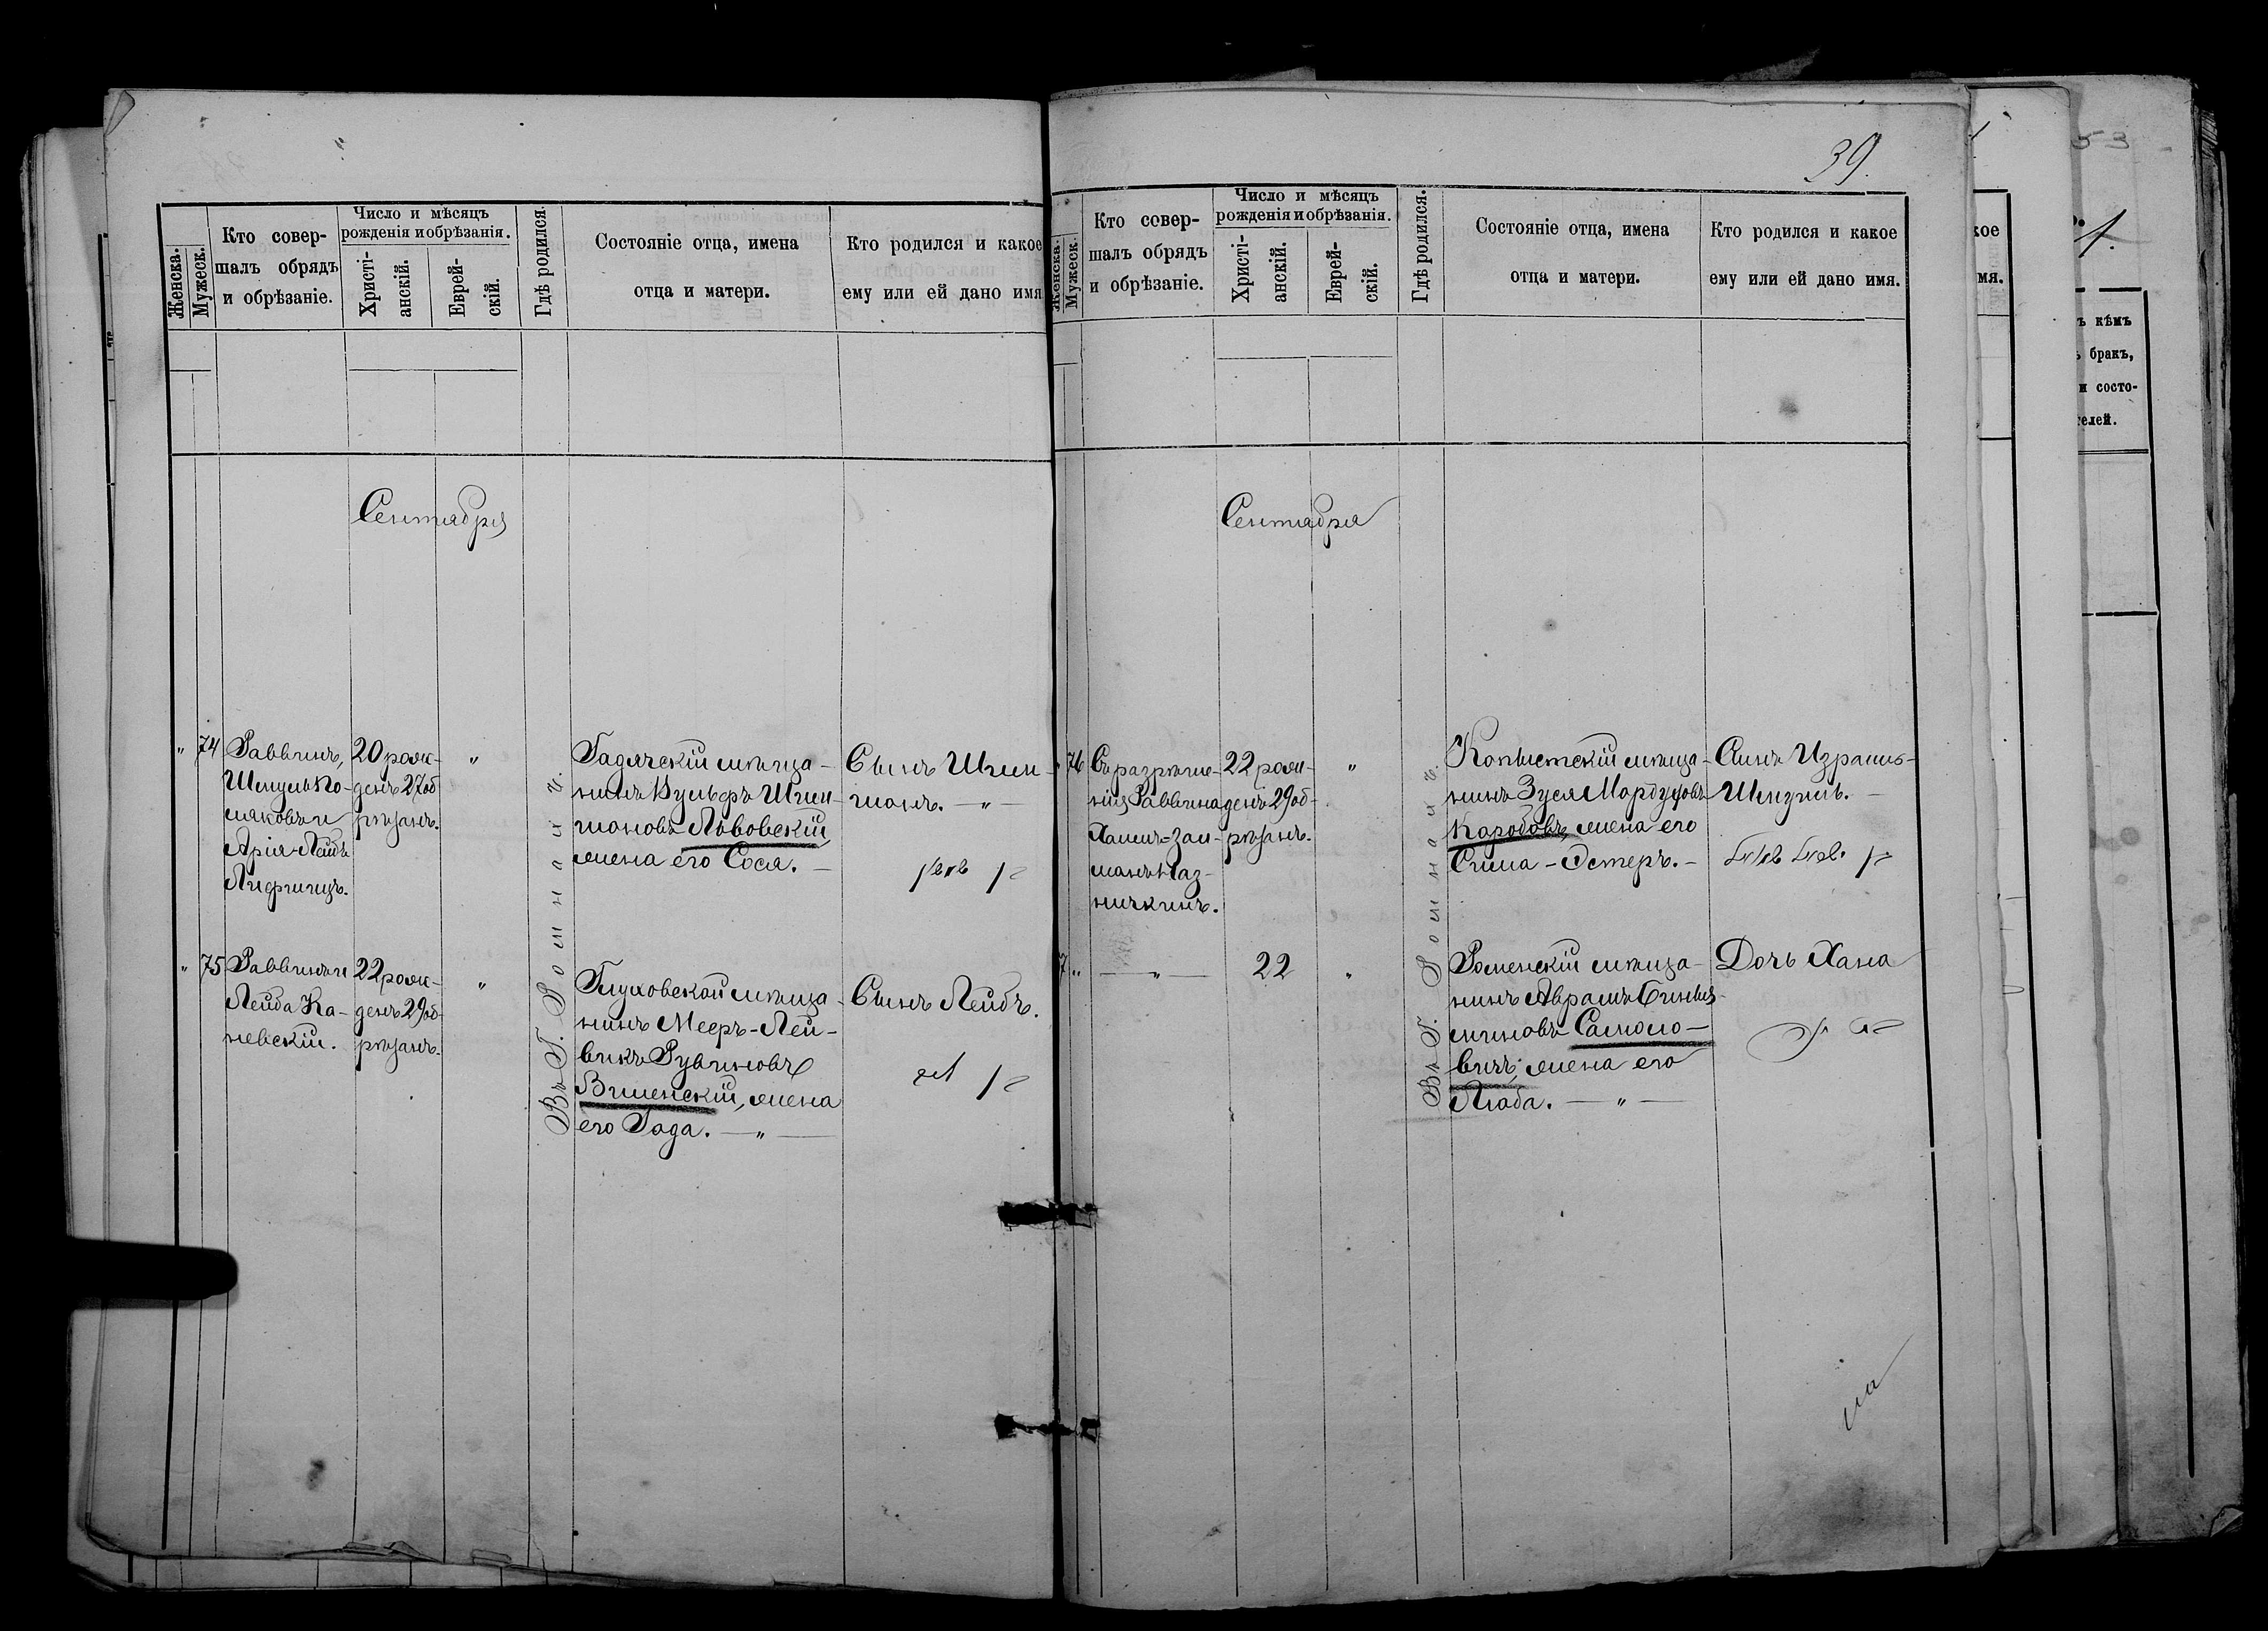 39.
Женска.
Мужеск.
Кто совер-
шалъ обрядъ
и обрѣзаніе.
Число и мѣсяцъ
рожденія и обрѣзанія.
Христі-
анскій.
Еврей-
скій.
Гдѣ родился.
Состояніе отца, имена
отца и матери.
Кто родился и какое
ему или ей дано имя
Сентября
" 74
Раввинъ,
Шмуль Ко-
маковъ и
Арія-Лейбъ
Лифшицъ.
20 рож-
денъ 27 об
рѣзанъ.
"
Въ г. Ромнахъ.
Гадячскій мѣща-
нинъ Вульфъ Шлем-
моновъ Львовскій,
жена его Сося. —
Сынъ Шлем-
монъ. — " —
" 75
Раввинъ и
Лейба Ка-
невскій.
22 рож-
денъ 29 об-
рѣзанъ.
"
Глуховской мѣща-
нинъ Мееръ-Лей-
викъ Рувиновъ
Виленскій, жена
его Года. — " —
Сынъ Лейбъ.
Женска.
Мужеск.
Кто совер-
шалъ обрядъ
и обрѣзаніе.
Число и мѣсяцъ
рожденія и обрѣзанія.
Христі-
анскій.
Еврей-
скій.
Гдѣ родился.
Состояніе отца, имена
отца и матери.
Кто родился и какое
ему или ей дано имя.
Сентября
" 76
Съ разрѣше-
нія Раввина
Хаимъ-Зал-
манъ Наз-
22 рож-
денъ 29 об-
рѣзанъ.
"
Въ г. Ромнахъ.
Копысткій мѣща-
нинъ Зуся Мордуховъ
Каробовъ, жена его
Сима-Эстеръ. —
Сынъ Израиль-
Шмуиль. —
7 "
— " —
22
"
Роменскій мѣща-
нинъ Аврамъ Бинья-
миновъ Самойло-
вичъ, жена его
Люба. — " —
Дочь Хана
кое
мя.
53
1.
ъ кѣмъ
ъ бракъ,
и состо-
телей.